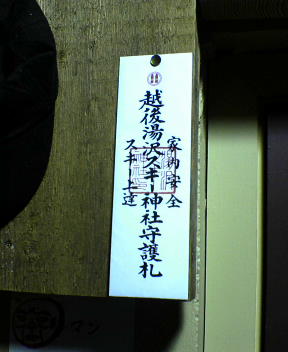 越後湯沢スキー神社守護札
家内安全
スキー上達
マン